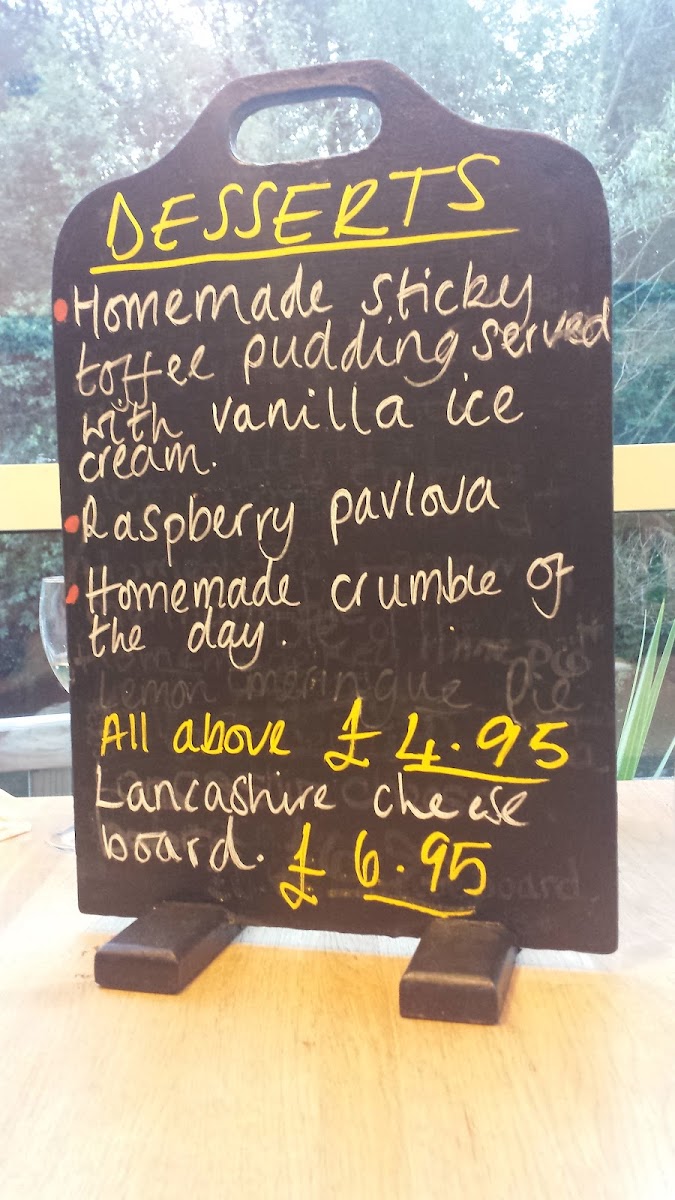 DESSERTS
• Homemade sticky
toffee pudding served
with vanilla ice
cream.
• Raspberry pavlova
• Homemade crumble of
the day.
Lemon meringue Pie
All above £4.95
Lancashire cheese
board. £6.95
board